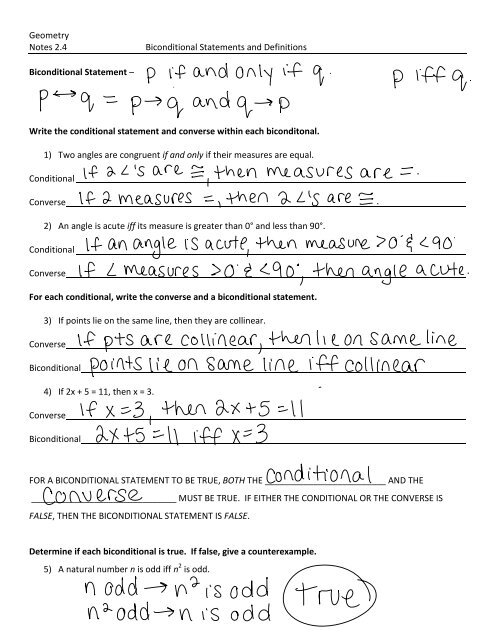 Geometry
Notes 2.4 Biconditional Statements and Definitions
Biconditional Statement – p if and only if q. p iff q.
p ↔ q = p → q and q → p
Write the conditional statement and converse within each biconditonal.
1) Two angles are congruent if and only if their measures are equal.
Conditional If 2 ∠'s are ≅, then measures are =.
Converse If 2 measures =, then 2 ∠'s are ≅.
2) An angle is acute iff its measure is greater than 0° and less than 90°.
Conditional If an angle is acute, then measure >0° & <90°
Converse If ∠ measures >0° & <90°, then angle acute.
For each conditional, write the converse and a biconditional statement.
3) If points lie on the same line, then they are collinear.
Converse If pts are collinear, then lie on same line
Biconditional points lie on same line iff collinear
4) If 2x + 5 = 11, then x = 3.
Converse If x=3, then 2x+5=11
Biconditional 2x+5=11 iff x=3
FOR A BICONDITIONAL STATEMENT TO BE TRUE, BOTH THE conditional AND THE
converse MUST BE TRUE. IF EITHER THE CONDITIONAL OR THE CONVERSE IS
FALSE, THEN THE BICONDITIONAL STATEMENT IS FALSE.
Determine if each biconditional is true. If false, give a counterexample.
5) A natural number n is odd iff n² is odd.
n odd → n² is odd
n² odd → n is odd true